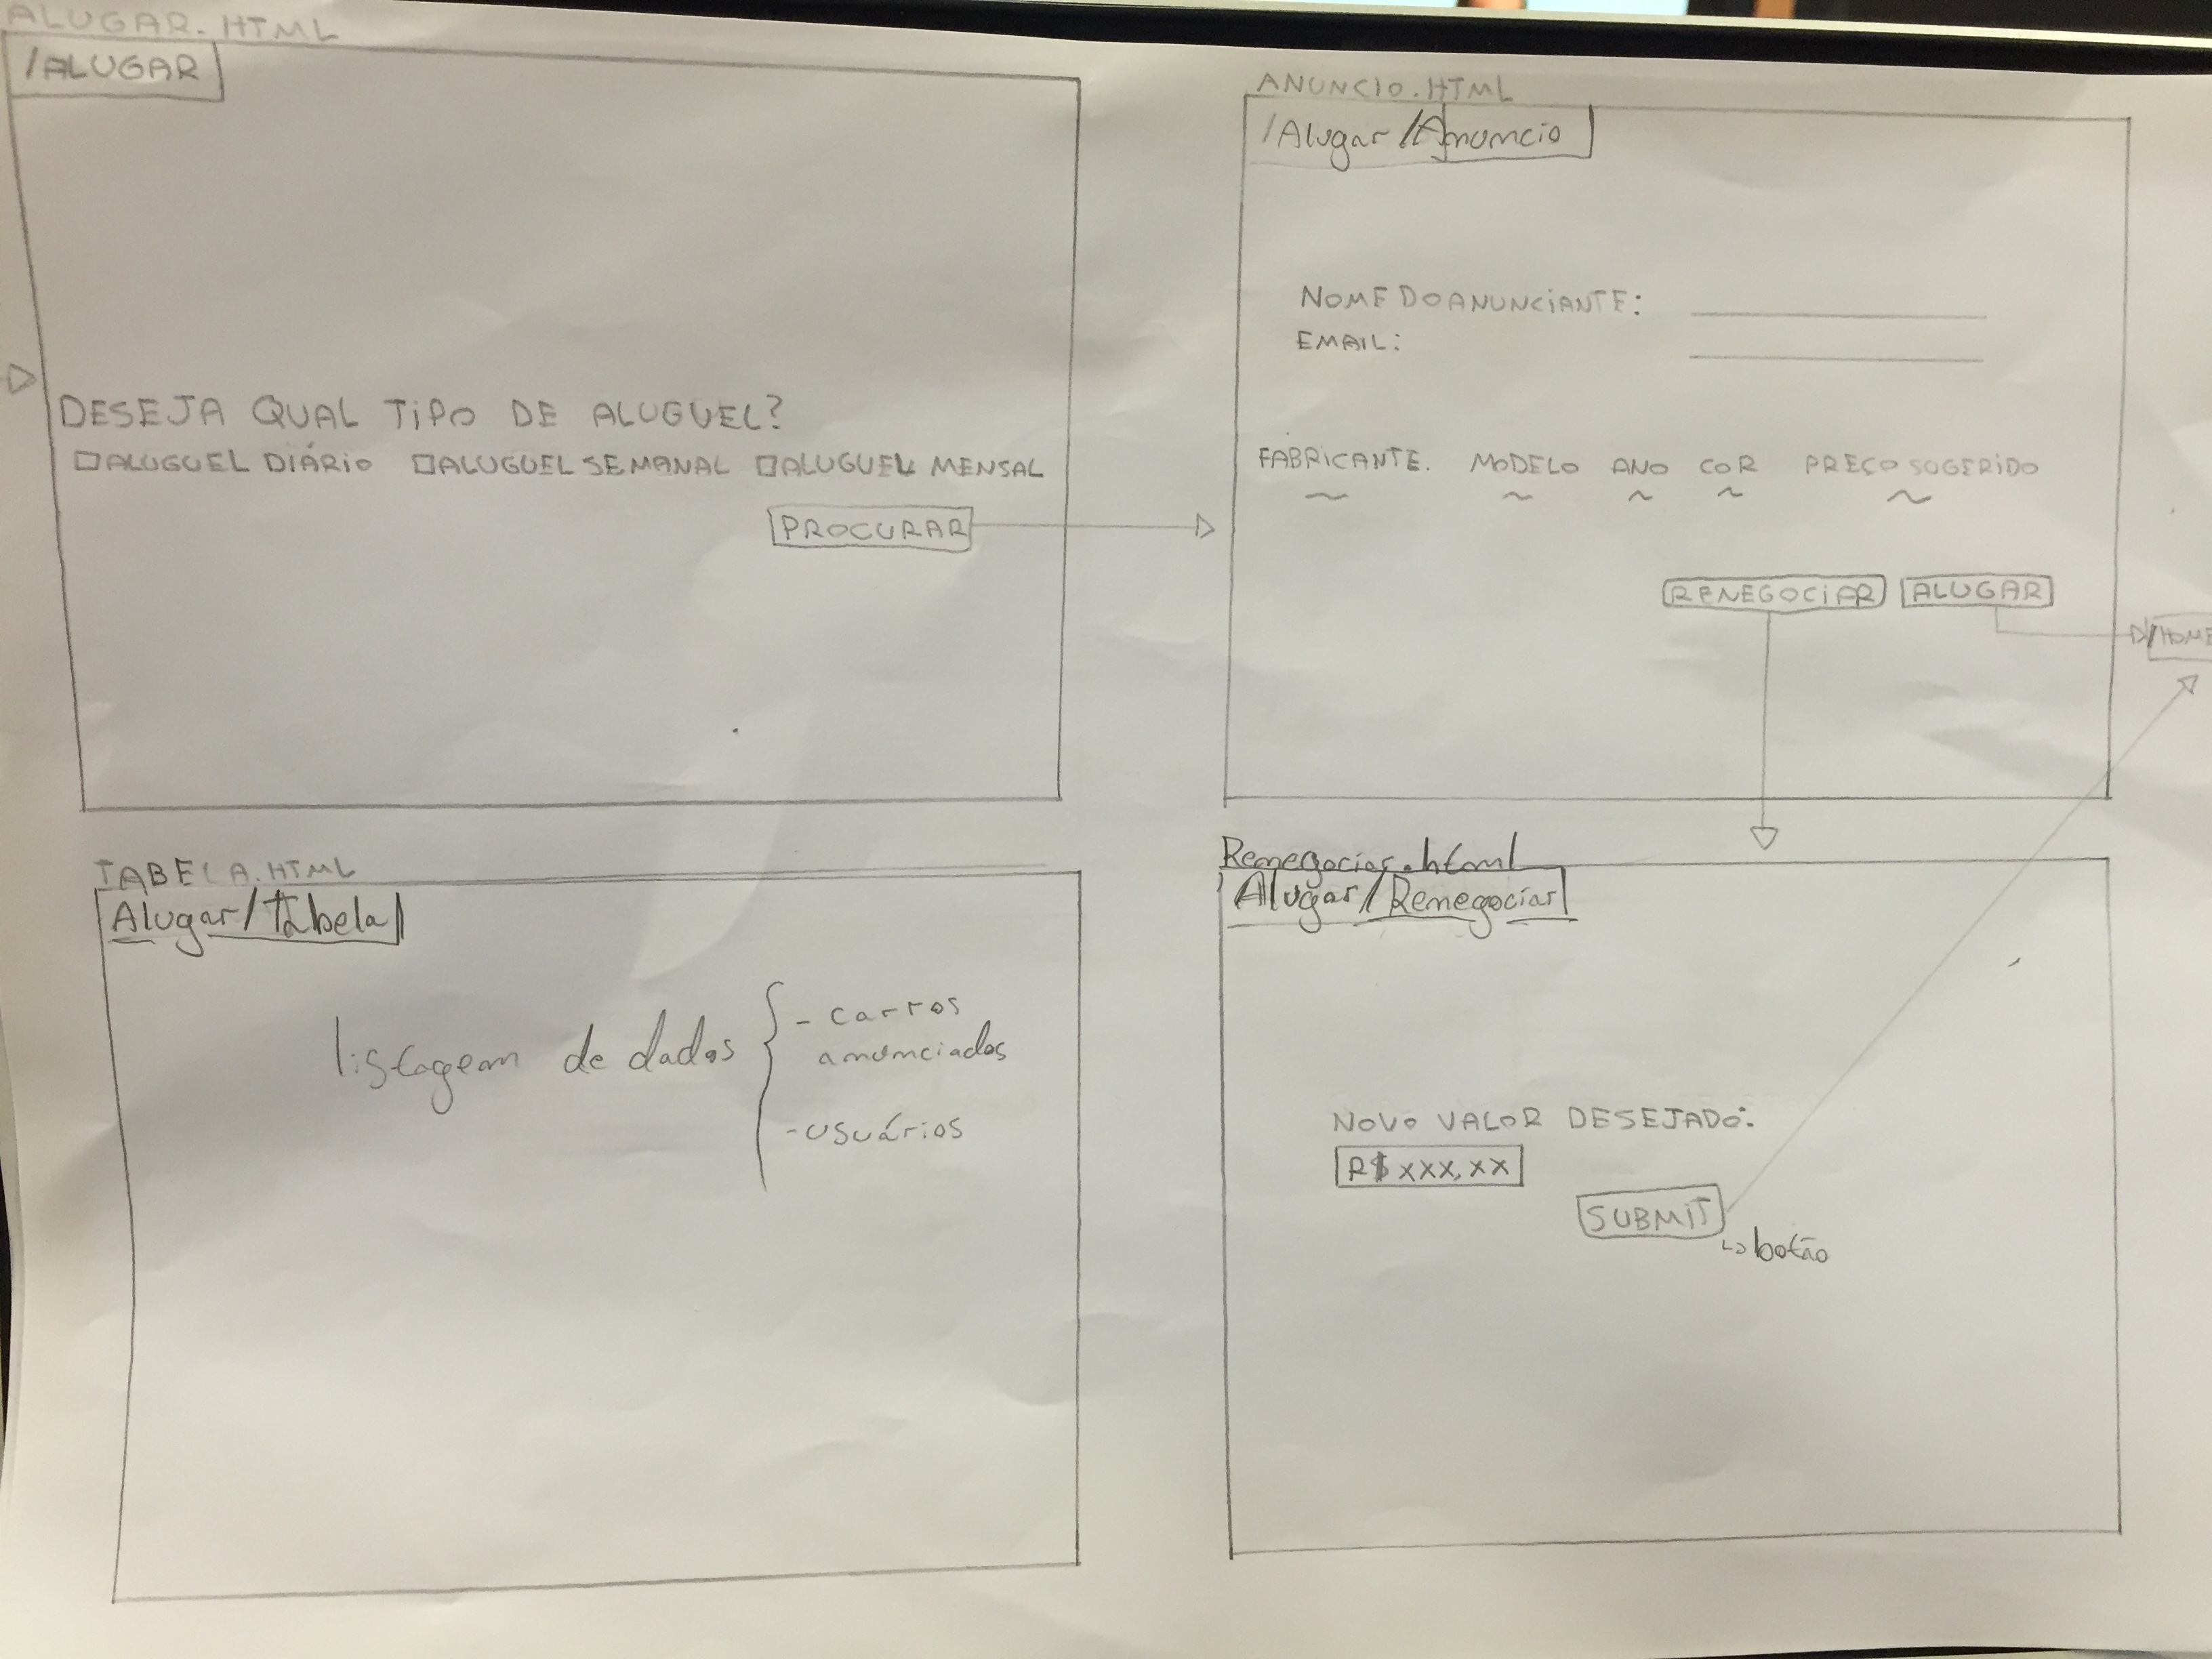 ALUGAR.HTML
/ALUGAR
DESEJA QUAL TIPO DE ALUGUEL?
ALUGUEL DIÁRIO ALUGUEL SEMANAL ALUGUEL MENSAL
PROCURAR
ANUNCIO.HTML
/Alugar/Anuncio
NOME DO ANUNCIANTE:
EMAIL:
FABRICANTE. MODELO ANO COR PREÇO SUGERIDO
RENEGOCIAR ALUGAR
/HOME
TABELA.HTML
Alugar/Tabela
listagem de dados
- carros
anunciados
- usuários
Renegociar.html
Alugar/Renegociar
NOVO VALOR DESEJADO:
R$ XXX,XX
SUBMIT
botão